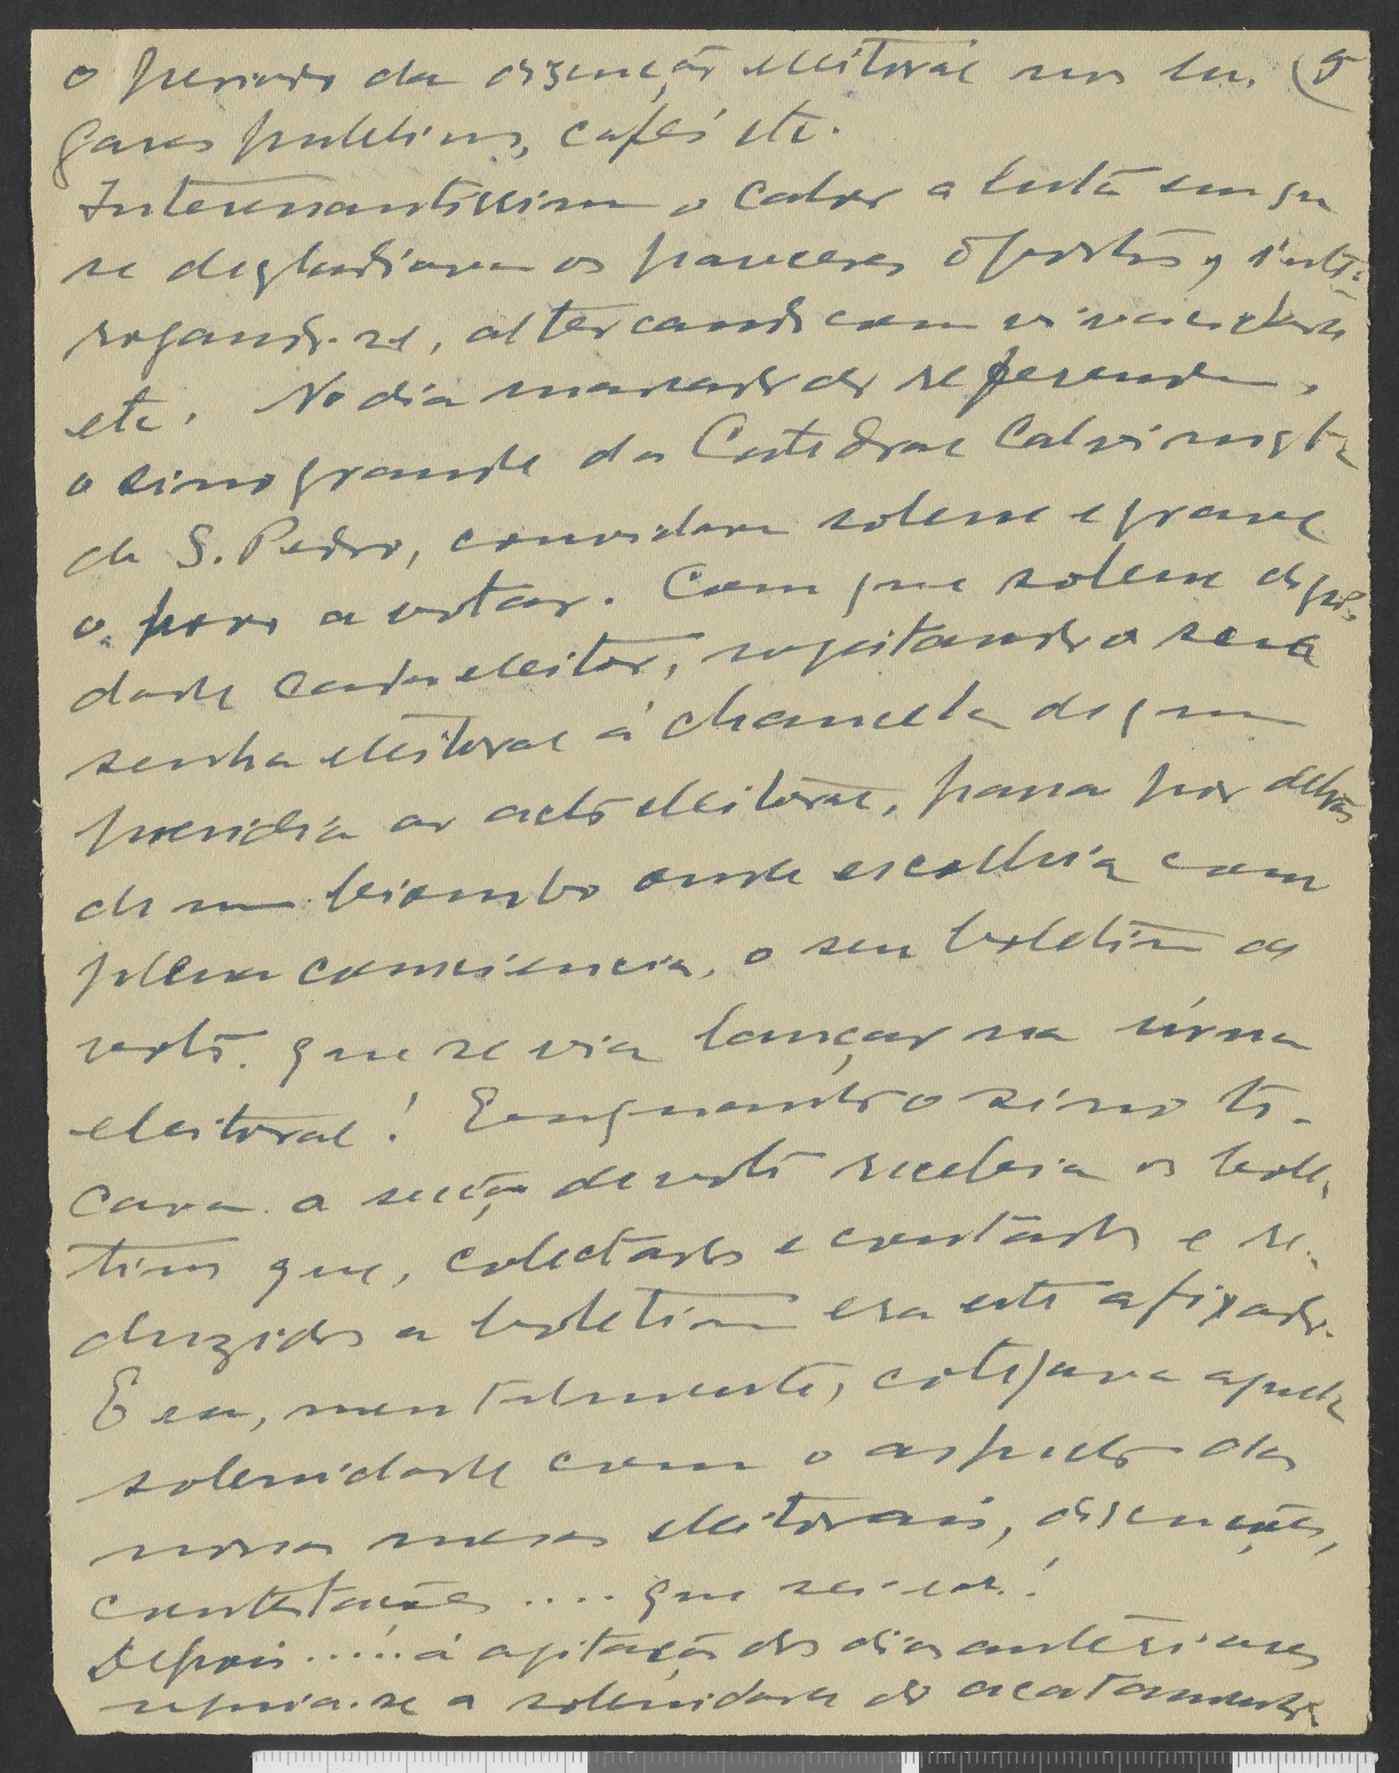 o periodo da discução eleitoral nos lu- (5
gares publicos, cafés etc.
Interessantissimo o calor a luta em que
se degladiavam os parceres opostos, inter-
rogando-se, altercando com vivacidade
etc. No dia marcado do referendum,
o sino grande da Catedral Calvinista
de S. Pedro, convidava solene e grave
o povo a votar. Com que solene digni-
dade cada eleitor, sugeitando a sua
senha eleitoral á chancela de quem
presidia ao acto eleitoral, passa por detrás
de um biombo onde escolhia com
plena consciencia, o seu boletim de
voto. que se via lançar na urna
eleitoral! Emquanto o sino to-
cava a secção de voto recebia os bole-
tins que, colectados e contados e re-
duzidos a boletim era este afixado.
E eu, mentalmente, cotejava aquela
solenidade com o aspecto das
nossas mesas eleitorais, discuções,
contestações .... que sei eu!
Depois ..... á agitação dos dias anteriores
seguia-se a solenidade do acatamento